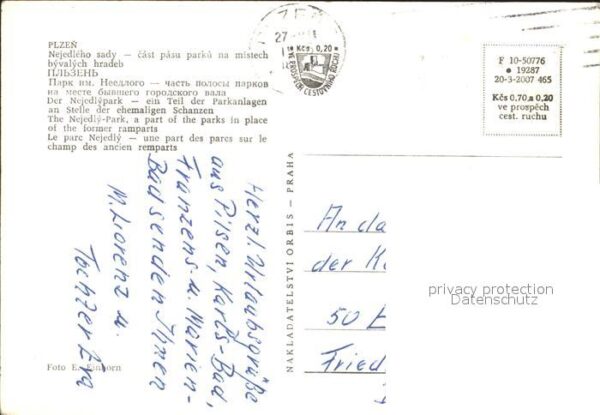 PLZEŇ
Nejedlého sady — část pásu parků na místech
bývalých hradeb
ПЛЬЗЕНЬ
Парк им. Неедлого — часть полосы парков
на месте бывшего городского вала
Der Nejedlýpark — ein Teil der Parkanlagen
an Stelle der ehemaligen Schanzen
The Nejedlý-Park, a part of the parks in place
of the former ramparts
Le parc Nejedlý — une part des parcs sur le
champ des anciens remparts
Foto E. Einhorn
Herzl. Urlaubsgrüße
aus Pilsen, Karls-Bad,
Franzens- u. Marien-
Bad senden Ihnen
M. Lorenz u.
Tochter Eva
NAKLADATELSTVÍ ORBIS — PRAHA
27
Kčs 0,20
VE PROSPĚCH CESTOVNÍHO RUCHU
F 10-50776
19287
20-3-2007 465
Kčs 0,70 a 0,20
ve prospěch
cest. ruchu
An da
der K
50
Fried
privacy protection
Datenschutz